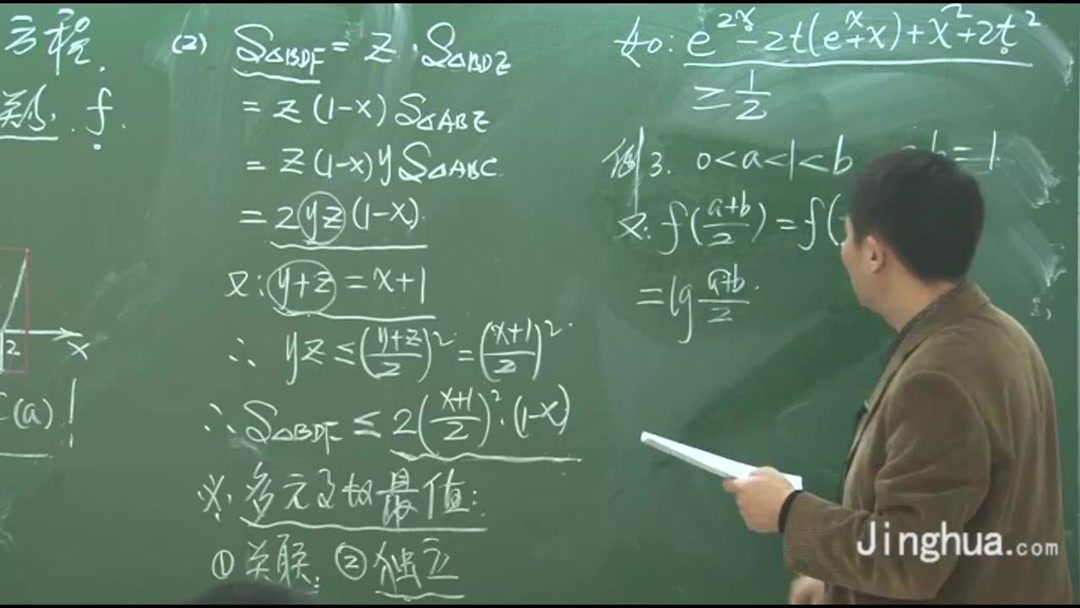 方程.
f.
2
x
C(a)
(2) S△BDF = z·S△BDE
= z(1-x)S△ABE
= z(1-x)yS△ABC
= 2yz(1-x).
又: y+z = x+1
∴ yz ≤ (y+z/2)² = (x+1/2)²
∴ S△BDF ≤ 2(x+1/2)²·(1-x)
※. 多元函数最值:
① 关联. ② 独立
e^{2x} - 2t(e^x + x) + x² + 2t²
≥ 1/2
例3. 0<a<1<b = 1.
又: f(a+b/2) = f(
= lg a+b/2.
Jinghua.com